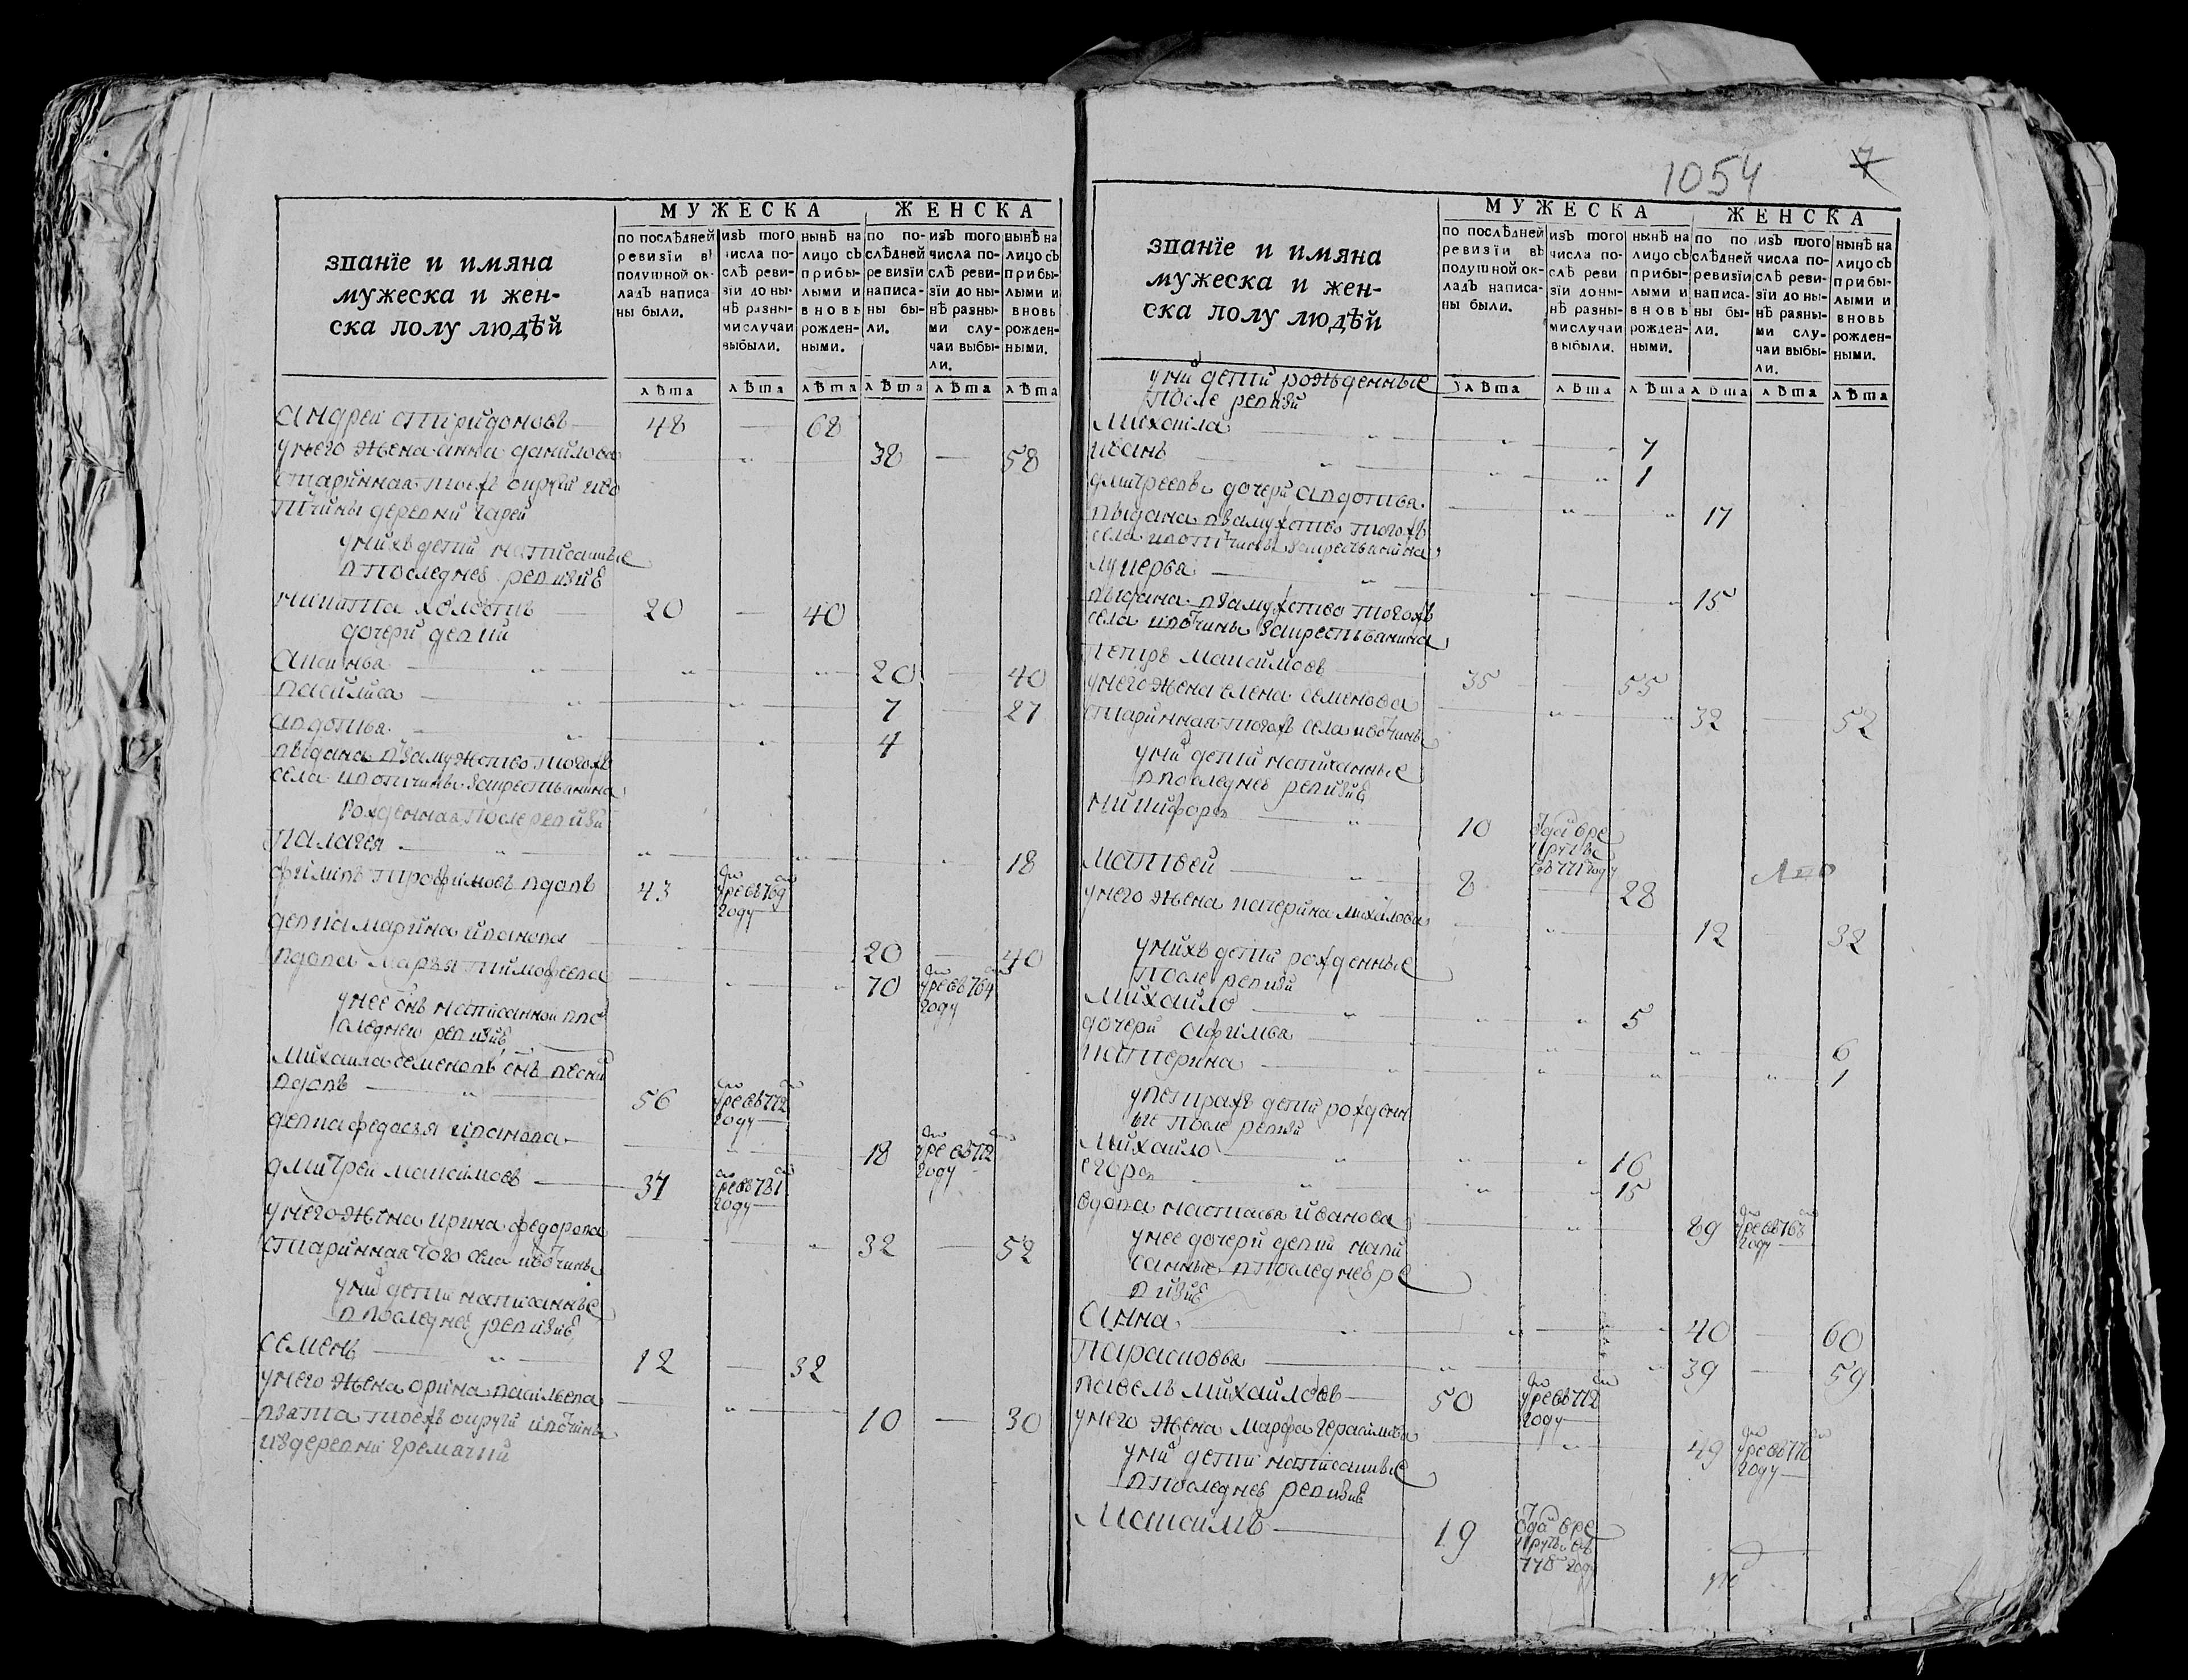 званїе и имяна
мужеска и жен-
ска полу людѣй
МУЖЕСКА
ЖЕНСКА
по послѣдней
ревизїи въ
подушной ок-
ладъ написа
ны были.
изъ того
числа по-
слѣ реви-
зїи до ны-
нѣ разны-
ми случаи
выбыли.
нынѣ на
лицо съ
прибы-
лыми и
вновь
рожден-
ными.
по по-
слѣдней
ревизїи
написа-
ны бы-
ли.
изъ того
числа по-
слѣ реви-
зїи до ны-
нѣ разны-
ми слу-
чаи выбы-
ли.
нынѣ на
лицо съ
прибы-
лыми и
вновь
рожден-
ными.
лѣта лѣта лѣта лѣта лѣта лѣта
Андреи спиридоновъ 48 — 68
унего жена анна данилова 38 — 58
старинная тоежъ округи иво
тчины деревни
унихъ дети написанные
впоследнеѣ ревизиѣ
никита холостъ 20 — 40
дочери девки
аксинья 20 — 40
василиса 7 — 27
авдотья 4
выдана взамужство тогожъ
села ивотчины закрестьянина
рожденная после ревизи
палагея 18
филипъ трофимовъ вдовъ 43 умре въ 769 году
девка марина иванова 20 — 40
вдова марья тимофеева 70 умре въ 764 году
унее снъ написанной впо
следнего ревизиѣ
михаила семеновъ снъ
вдовъ 56 умре въ 772 году
девка федосья иванова 18 умре въ 772 году
дмитреи максимовъ 37 умре въ 781 году
унего жена ирина федорова 32 — 52
старинная того села ивотчины
уни дети написанные
впоследнеѣ ревизиѣ
семенъ 12 — 32
унего жена орина васильева 10 — 30
взята тоежъ округи ивотчины
издеревни гремячки
1054
7
званїе и имяна
мужеска и жен-
ска полу людѣй
МУЖЕСКА
ЖЕНСКА
по послѣдней
ревизїи въ
подушной ок-
ладъ написа-
ны были.
изъ того
числа по-
слѣ реви
зїи до ны-
нѣ разны-
ми случаи
выбыли.
нынѣ на
лицо съ
прибы-
лыми и
вновь
рожден-
ными.
по по
слѣдней
ревизїи
написа-
ны бы-
ли.
изъ того
числа по-
слѣ реви-
зїи до ны-
нѣ разны-
ми слу-
чаи выбы-
ли.
нынѣ на
лицо съ
прибы-
лыми и
вновь
рожден-
ными.
лѣта лѣта лѣта лѣта лѣта лѣта
уни дети рожденные
после ревизи
михаила 7
иванъ 1
дмитреевы дочери авдотья 17
выдана взамужство тогожъ
села ивотчины закрестьянина
лукерья 15
выдана взамужство тогожъ
села ивотчины закрестьянина
петръ максимовъ 35 — 55
унего жена елена семенова 32 — 52
старинная тогожъ села ивотчины
уни дети написанные
впоследнеѣ ревизиѣ
никифоръ 10 отданъ врекруты въ 771 году
матвей 8 — 28
унего жена катерина михайлова 12 — 32
унихъ дети рожденные
после ревизи
михайло 5
дочери афимья 6
катерина 1
упетрахъ дети рожденн
ые после ревизи
михайло 16
егоръ 15
вдова настасья иванова 89 умре въ 768 году
унее дочери девки напи
санные впоследнеѣ ре
визиѣ
анна 40 — 60
парасковья 39 — 59
павелъ михайловъ 50 умре въ 772 году
унего жена марфа герасимова 49 умре въ 770 году
уни дети написанные
впоследнеѣ ревизиѣ
максимъ 19 отданъ врекруты въ 778 году